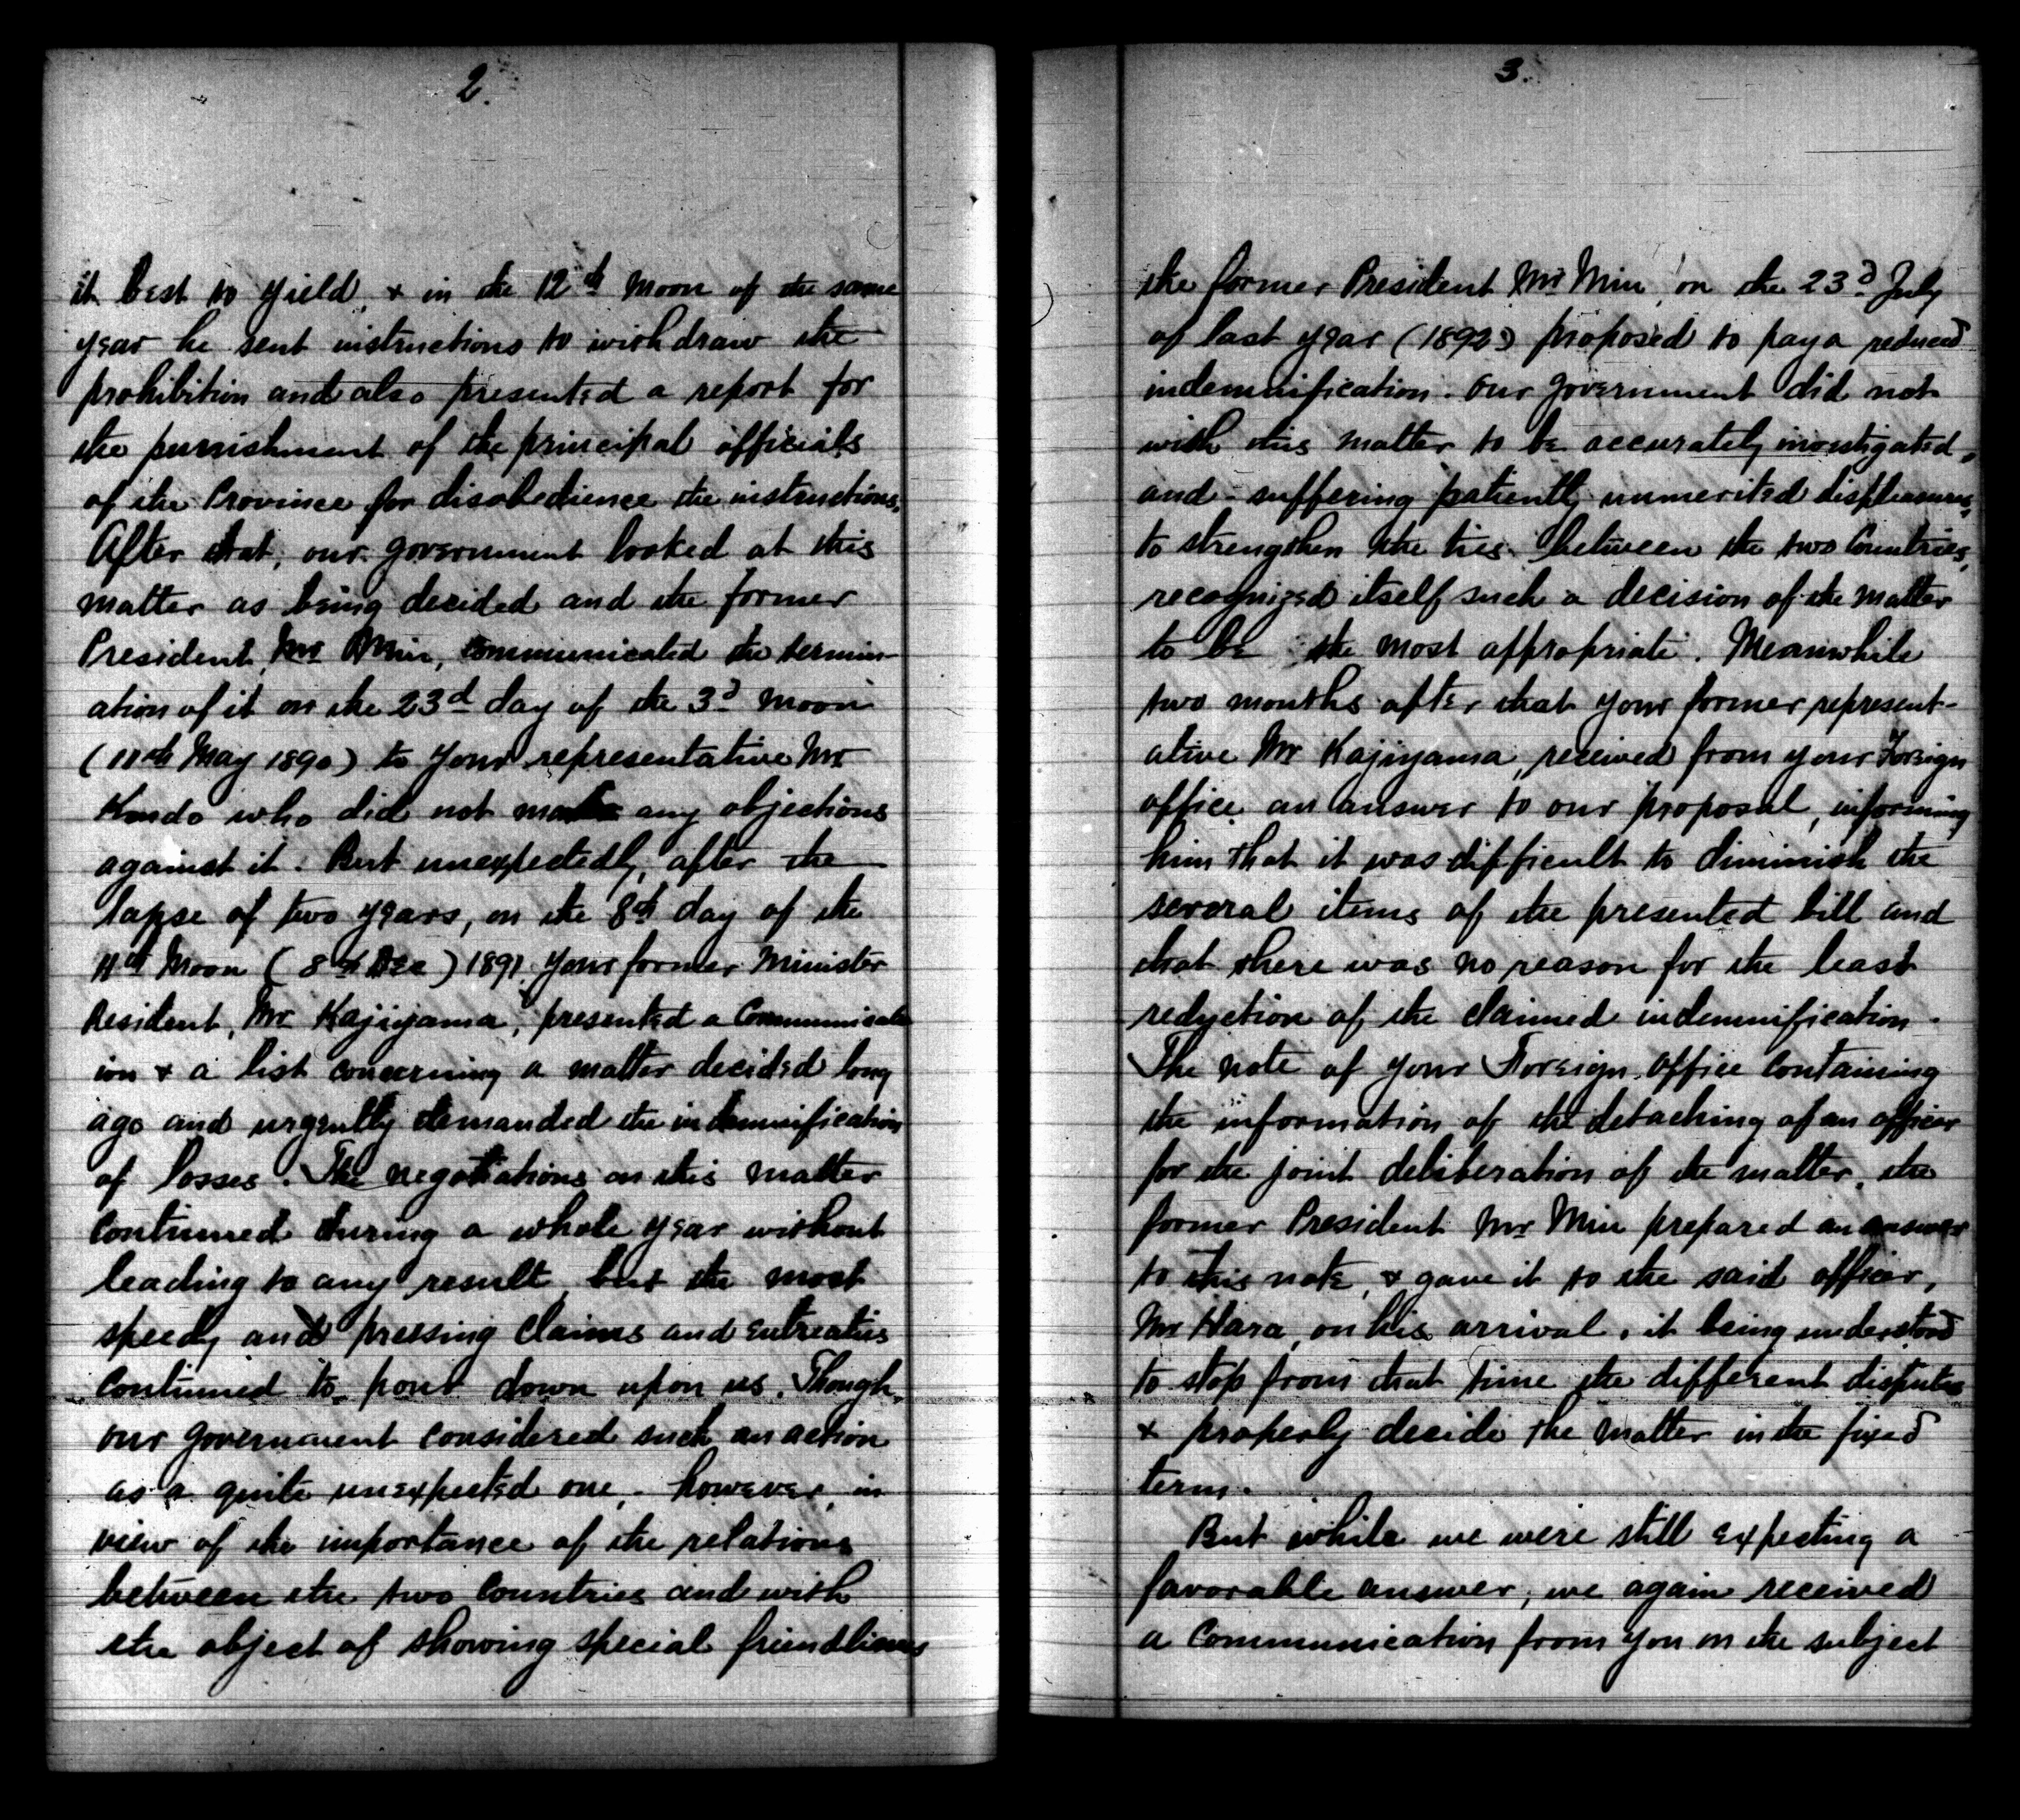 2.
it best to yield, & in the 12th Moon of the same
year he sent instructions to withdraw the
prohibition and also presented a report for
the punishment of the principal officials
of the Province for disobedience the instructions.
After that, our government looked at this
matter as being decided and the former
President, Mr Min, communicated the termin-
ation of it on the 23d day of the 3d Moon
(11th May 1890) to your representative Mr
Kondo who did not make any objections
against it. But unexpectedly, after the
lapse of two years, on the 8th day of the
11th Moon (8th Dec) 1891 your former Minister
Resident, Mr Kajiyama, presented a Communicat
ion & a list concerning a matter decided long
ago and urgently demanded the indemnification
of losses. The negotiations on this matter
continued during a whole year without
leading to any result, but the most
speedy and pressing claims and entreaties
continued to pour down upon us. Though,
our government considered such an action
as a quite unexpected one, - however, in
view of the importance of the relations
between the two Countries and with
the object of showing special friendliness
3.
the former President Mr Min, on the 23d July
of last year (1892) proposed to pay a reduced
indemnification. Our government did not
wish this matter to be accurately investigated,
and - suffering patiently unmerited displeasure,
to strengthen the ties between the two Countries,
recognized itself such a decision of the matter
to be the most appropriate. Meanwhile
two months after that your former represent-
ative Mr Kajiyama, received from your Foreign
office an answer to our proposal, informing
him that it was difficult to diminish the
several items of the presented bill and
that there was no reason for the least
reduction of the claimed indemnification.
The note of your Foreign Office containing
the information of the detaching of an officer
for the joint deliberation of the matter, the
former President Mr Min prepared an answer
to this note, & gave it to the said officer,
Mr Hara, on his arrival, it being understood
to stop from that time the different disputes
& properly decide the matter in the fixed
term.
But while we were still expecting a
favorable answer, we again received
a Communication from you on the subject